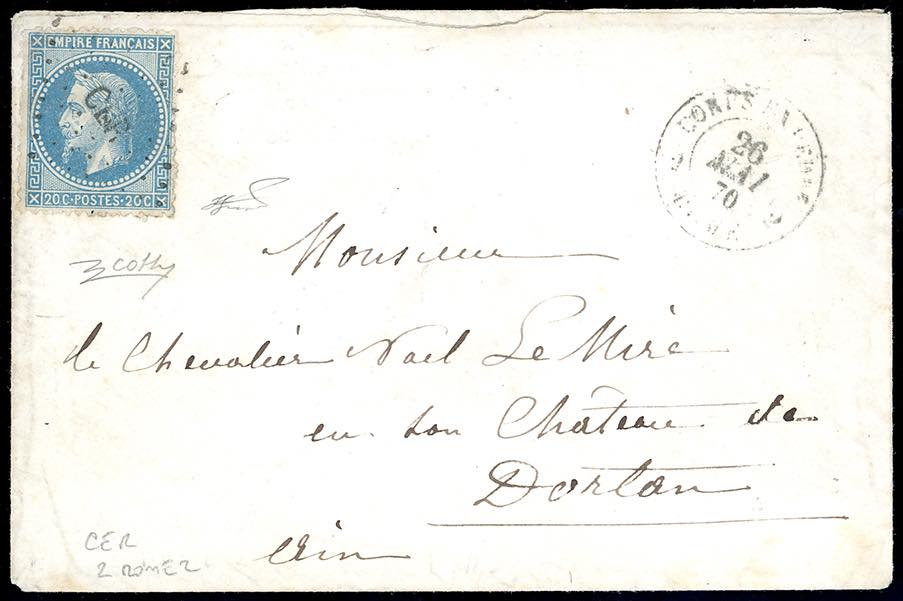 EMPIRE FRANÇAIS
CER
20 C·POSTES·20 C
26
MAI
70
Monsieur
le Chevalier Noel Le Mire
en son Château de
Dortan
Ain
CER
2 ROME 2